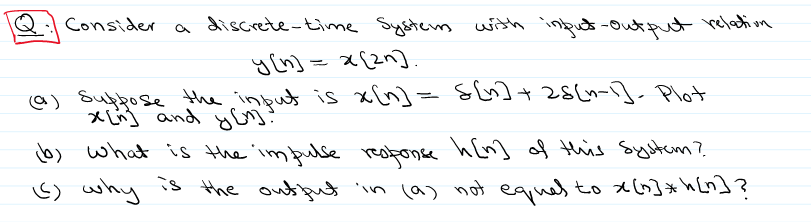 Q: Consider a discrete-time system with input-output relation
y[n] = x[2n].
(a) Suppose the input is x[n] = δ[n] + 2δ[n-1]. Plot
x[n] and y[n].
(b) What is the impulse response h[n] of this system?
(c) why is the output in (a) not equal to x[n] * h[n]?